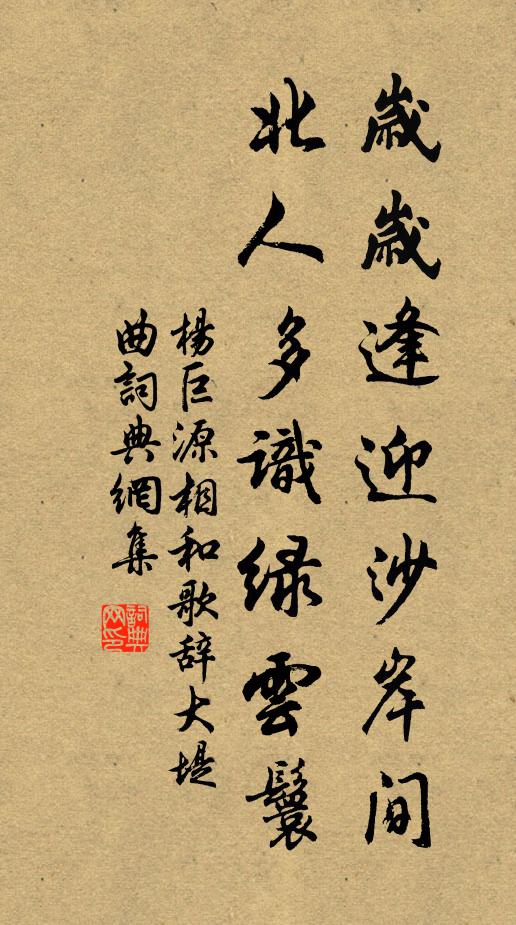 歲歲逢迎沙岸間
北人多識綠雲鬟
楊巨源相和歌辞大堤
曲詞典網集
詞典
网印